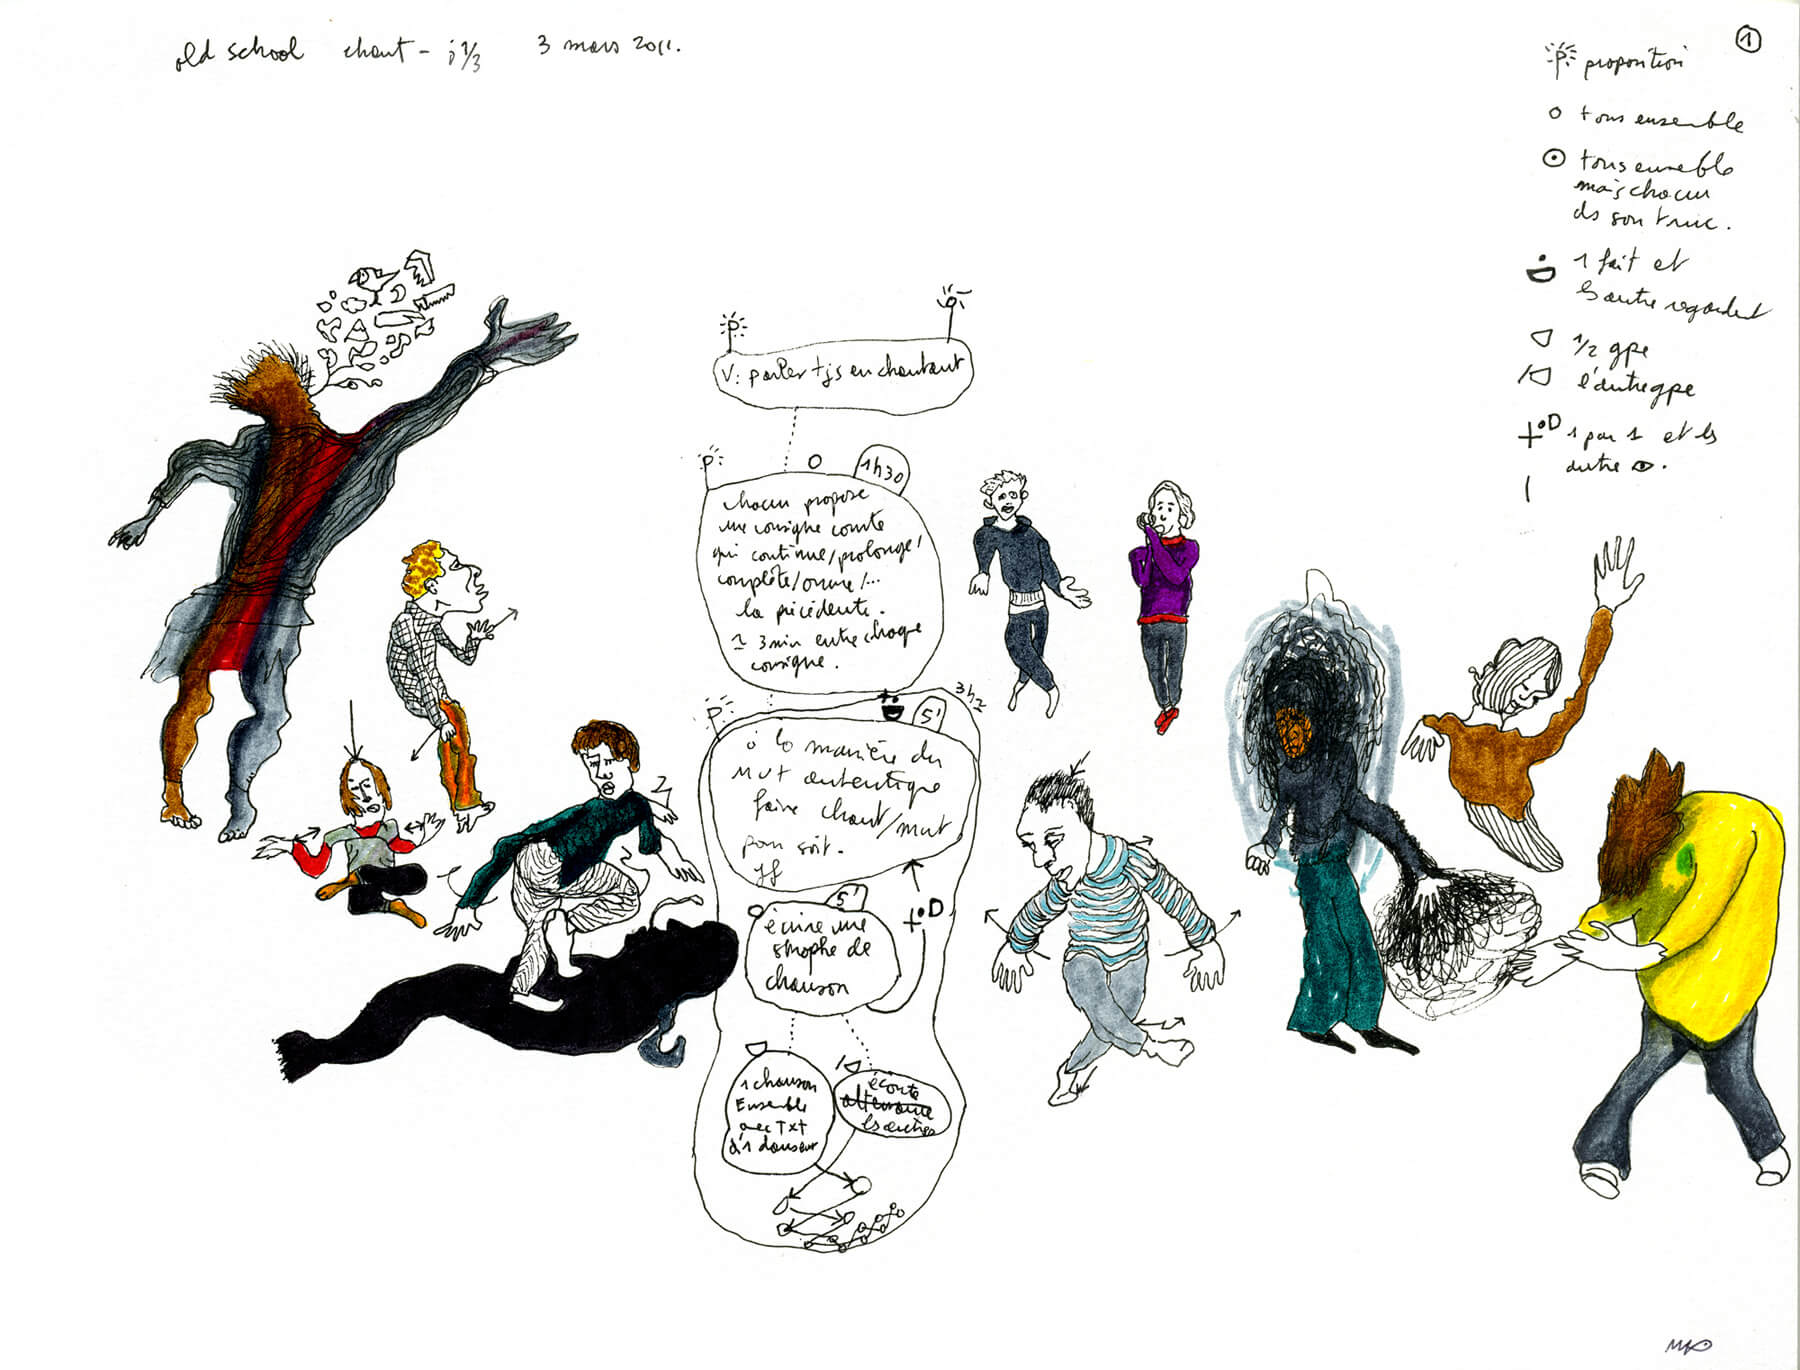 old school chant - j 1/3 3 mars 2011.
1
P proposition
tous ensemble
tous ensemble
mais chacun
ds son truc.
1 fait et
ls autre regardent
1/2 gpe
l'autre gpe
D 1 par 1 et ls
autre
P
V: parler tjs en chantant
P
1h30
chacun propose
une consigne courte
qui continue/prolonge/
complète/ouvre/...
la précédente.
≃ 3 min entre chaque
consigne.
P
5'
à la manière du
mut autentique
faire chant/mut
pour soit.
D
5'
écrire une
strophe de
chanson
1 chanson
Ensemble
avec Txt
d'1 danseur
écoute
alternance
les autres